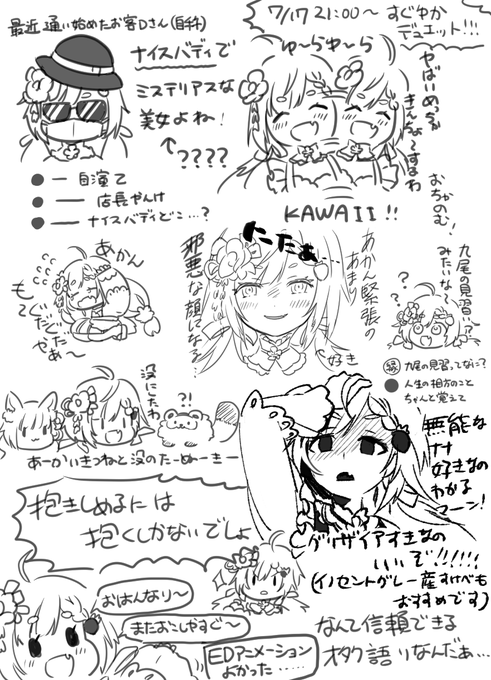 最近通い始めたお客Dさん(自称)
ナイスバディで
ミステリアスな
美女よね!
↑
????
●一 自演乙
●── 店長やんけ
●── ナイスバディどこ…?
7/17 21:00～ すぐゆか
デュエット!!!
ゆ～らゆ～ら
やばいめっちゃ
きんちょ～すわ
おちゃのむ!
KAWAII!!
あかん
も～
ぐだぐだ
やったぁ～
にたぁ…
邪悪な顔になる…
あかん緊張の
あまり
好き
九尾の見習い…?
みたいな～
???
九尾の見習ってなに?
●人生の相方のこと
ちゃんと覚えて
没にこたわ
?!
あーかいきつねと没のたーぬーきー
無能な
ナナ
好きなの
わかる
マーン!
抱きしめるには
抱くしかないでしょ
グリザイアすきなの
いいぞ!!!!!
(イノセントグレー産すけべも
おすすめです)
おはんなり～
またおこしやすぅ～
EDアニメーション
よかった……
なんて信頼できる
オタク語りなんだぁ…